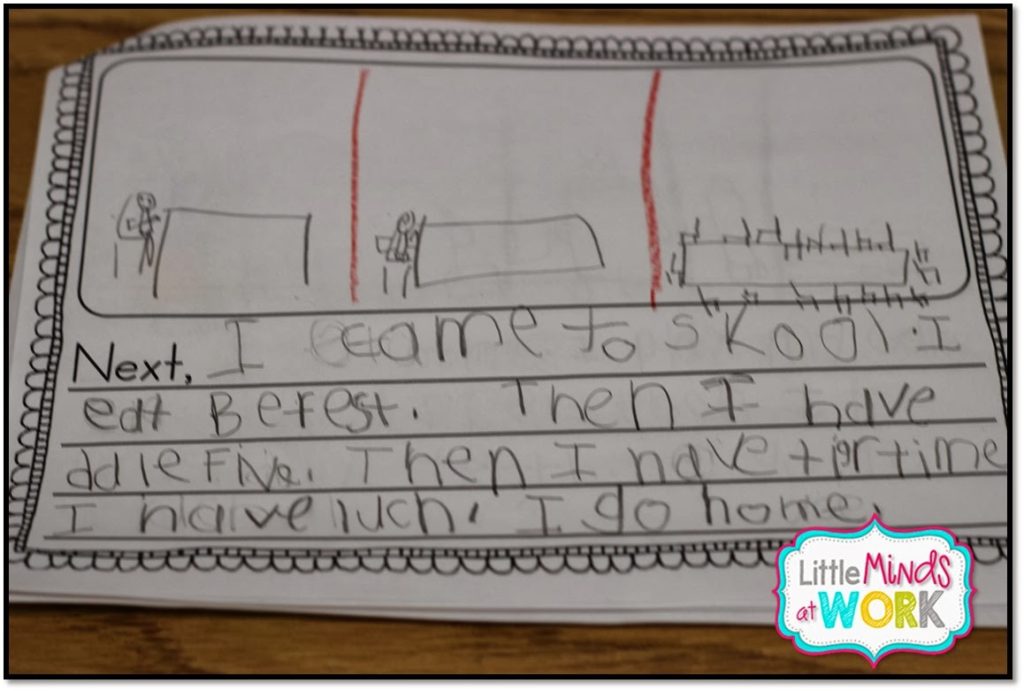 Next, I came to skool. I
eat Berest. Then I have
ddle Five. Then I have tortime
I have luch. I go home.
Little Minds
at WORK